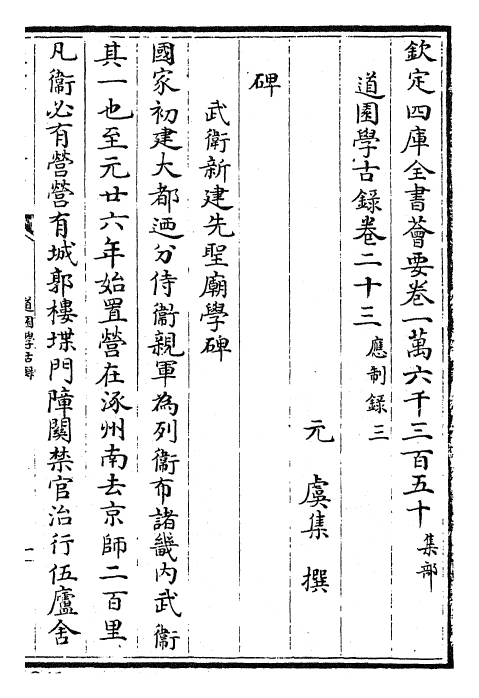 欽定四庫全書薈要卷一萬六千三百五十 集部
道園學古錄卷二十三 應制錄三
元 虞集 撰
碑
武衛新建先聖廟學碑
國家初建大都迺分侍衞親軍為列衞布諸畿內武衞
其一也至元廿六年始置營在涿州南去京師二百里
凡衞必有營營有城郭樓堞門障關禁官治行伍廬舍
道園學古錄
一